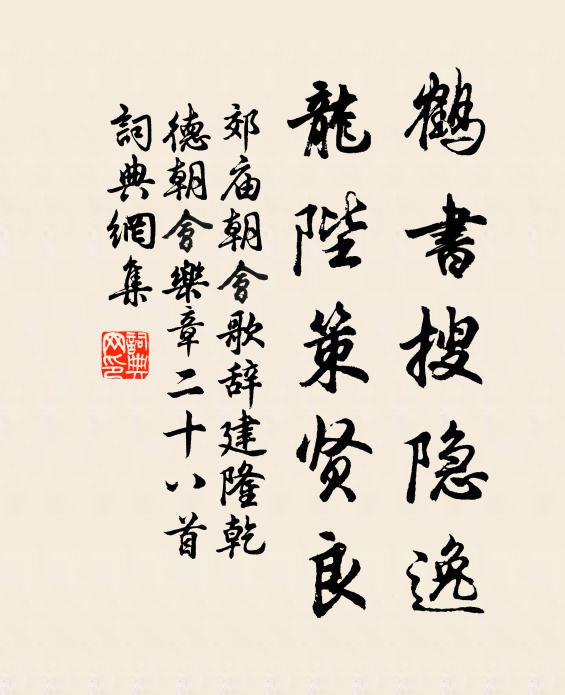 鹤書搜隐逸
龍陛策贤良
郊庙朝會歌辞建隆乾
德朝會樂章二十八首
詞典網集
詞典网印